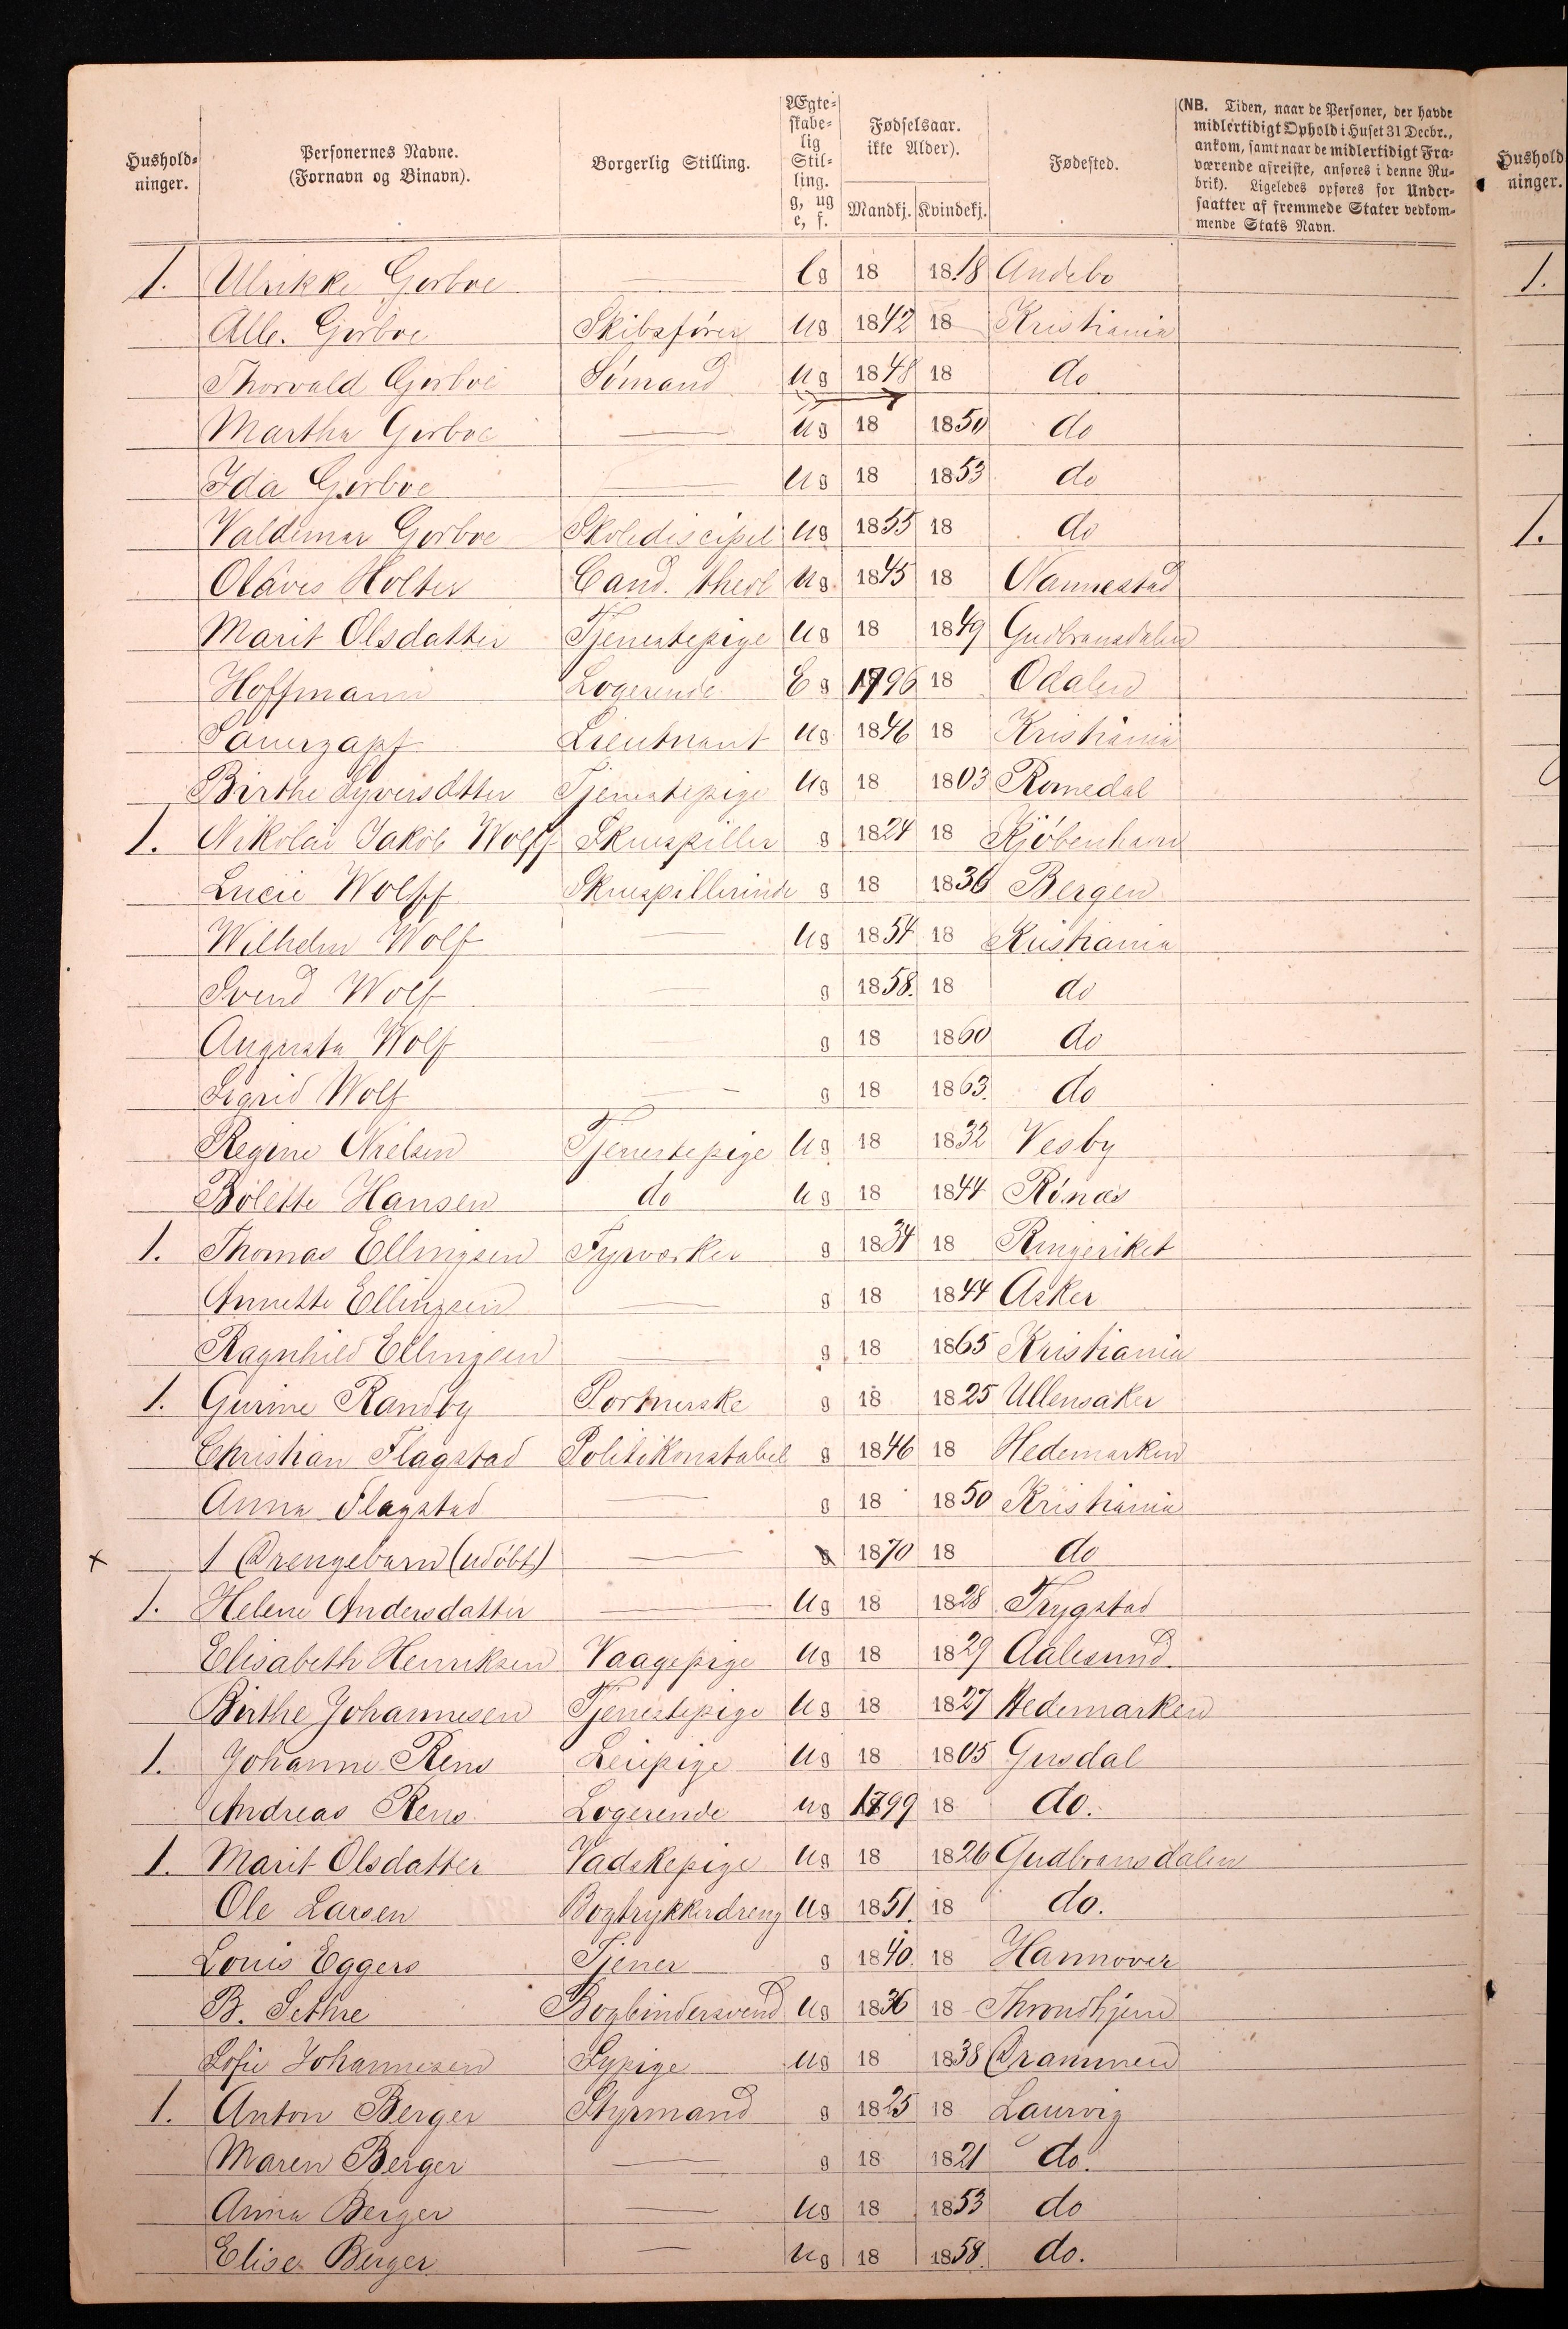 Hushold-
ninger.
Personernes Navne.
(Fornavn og Binavn).
Borgerlig Stilling.
Ægte-
skabe-
lig
Stil-
ling.
g, ug
e, f.
Fødselsaar.
ikke Alder).
Mandkj. Kvindekj.
Fødested.
(NB. Tiden, naar de Personer, der havde
midlertidigt Ophold i Huset 31 Decbr.,
ankom, samt naar de midlertidigt Fra-
værende afreiste, anføres i denne Ru-
brik). Ligeledes opføres for Under-
saatter af fremmede Stater vedkom-
mende Stats Navn.
Hushold
ninger.
1. Ulrikke Gørboe — Eg 18 1818 Andebo
Alb. Gørboe Skibsfører Ug 1842 18 Kristiania
Thorvald Gørboe Sømand Ug 1848 18 do
Martha Gørboe — Ug 18 1850 do
Ida Gørboe — Ug 18 1853 do
Valdemar Gørboe Skolediscipel Ug 1855 18 do
Olaves Holter Cand. theol Ug 1845 18 Nannestad
Marit Olsdatter Tjenestepige Ug 18 1849 Gudbransdalen
Hoffmann Logerende E g 1796 18 Odalen
Sauerzapf Lieutnant Ug 1846 18 Kristiania
Birthe Syversdtter Tjenestepige Ug 18 1803 Romedal
1. Nikolai Jakob Wolff Skuespiller g 1824 18 Kjøbenhavn
Lucie Wolff Skuespillerinde g 18 1836 Bergen
Wilhelm Wolf — Ug 1854 18 Kristiania
Svend Wolf — g 1858. 18 do
Augusta Wolf g 18 1860 do
Sigrid Wolf — g 18 1863. do
Regine Nielsen Tjenestepige Ug 18 1832 Vesby
Bolette Hansen do Ug 18 1844 Rønæs
1. Thomas Ellingsen Fyrværker g 1834 18 Ringeriket
Annette Ellingsen — g 18 1844 Asker
Ragnhild Ellingsen — g 18 1865 Kristiania
1. Gurine Randby Portnerske g 18 1825 Ullensaker
Christian Flagstad Politikonstabel g 1846 18 Hedemarken
Anna Flagstad — g 18 1850 Kristiania
x 1 Drengebarn (udøbt) — g 1870 18 do
1. Helene Andersdatter — Ug 18 1828 Trygstad
Elisabeth Henriksen Vaagepige Ug 18 1829 Aalesund.
Birthe Johannesen Tjenestepige Ug 18 1827 Hedemarken
1. Johanne Rens Leiepige Ug 18 1805 Gusdal
Andreas Rens Logerende ug 1799 18 do.
1. Marit Olsdatter Vadskepige Ug 18 1826 Gudbransdalen
Ole Larsen Bogtrykkerdreng Ug 1851. 18 do.
Louis Eggers Tjener g 1840. 18 Hannover
B. Sethre Bogbindersvend Ug 1836 18 Throndhjem
Sofie Johannesen Sypige Ug 18 1838 Drammen
1. Anton Berger Styrmand g 1825 18 Laurvig
Maren Berger — g 18 1821 do.
Anna Berger — Ug 18 1853 do
Elise Berger — Ug 18 1858. do.
1.
1.